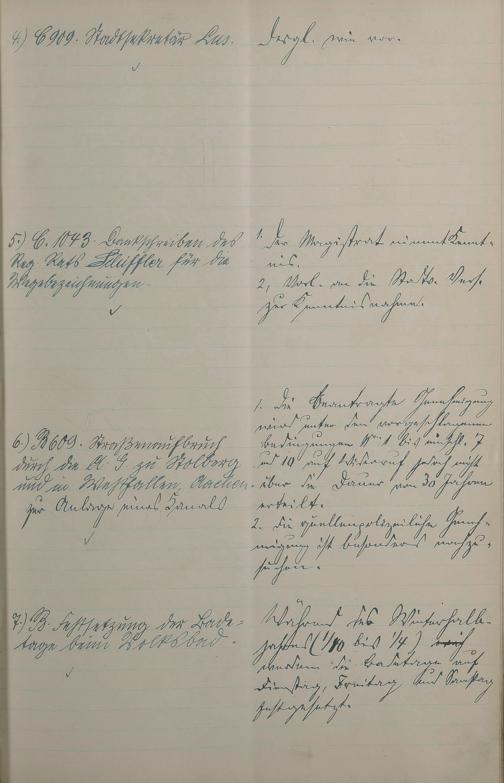 4.) C 909. Stadtsekretär Lus.
Desgl. wie vor.
5.) C. 1043. Dankschreiben des
Reg. Rats Schiffler für die
Wegebezeichnungen.
1. Der Magistrat nimmt Kennt-
nis.
2, Vorl. an die Stadtv. Vers.
zur Kenntnisnahme.
6.) B 609. Straßenaufbruch
durch die A. G. zu Stolberg
und in Westfalen, Aachen
zur Anlage eines Kanals
1. Die beantragte Genehmigung
wird unter den vorgeschlagenen
Bedingungen 1 bis 7
und 10 auf Widerruf jedoch nicht
über die Dauer von 30 Jahren
erteilt.
2. Die quellenpolizeiliche Geneh-
migung ist besonders nachzu-
suchen.
7.) B. Festsetzung der Bade-
tage beim Volksbad.
Während des Winterhalb-
jahres (1/10 bis 1/4)
werden die Badetage auf
Dienstag, Freitag und Samstag
festgesetzt.